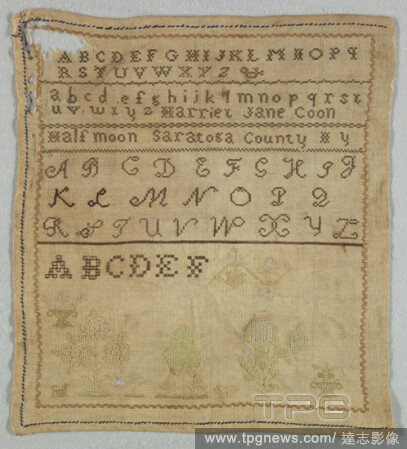 ABCDEFGHIJKLMNOPQ
RSTUVWXYZ
abcdefghijklmnopqrsı
uvwxyz Harriet Jane Coon
Halfmoon Saratoga County N y
A B C D E F G H I J
K L M N O P Q
R S T U V W X Y Z
ABCDEF
TPG
www.tpgnews.com/ 達志影像